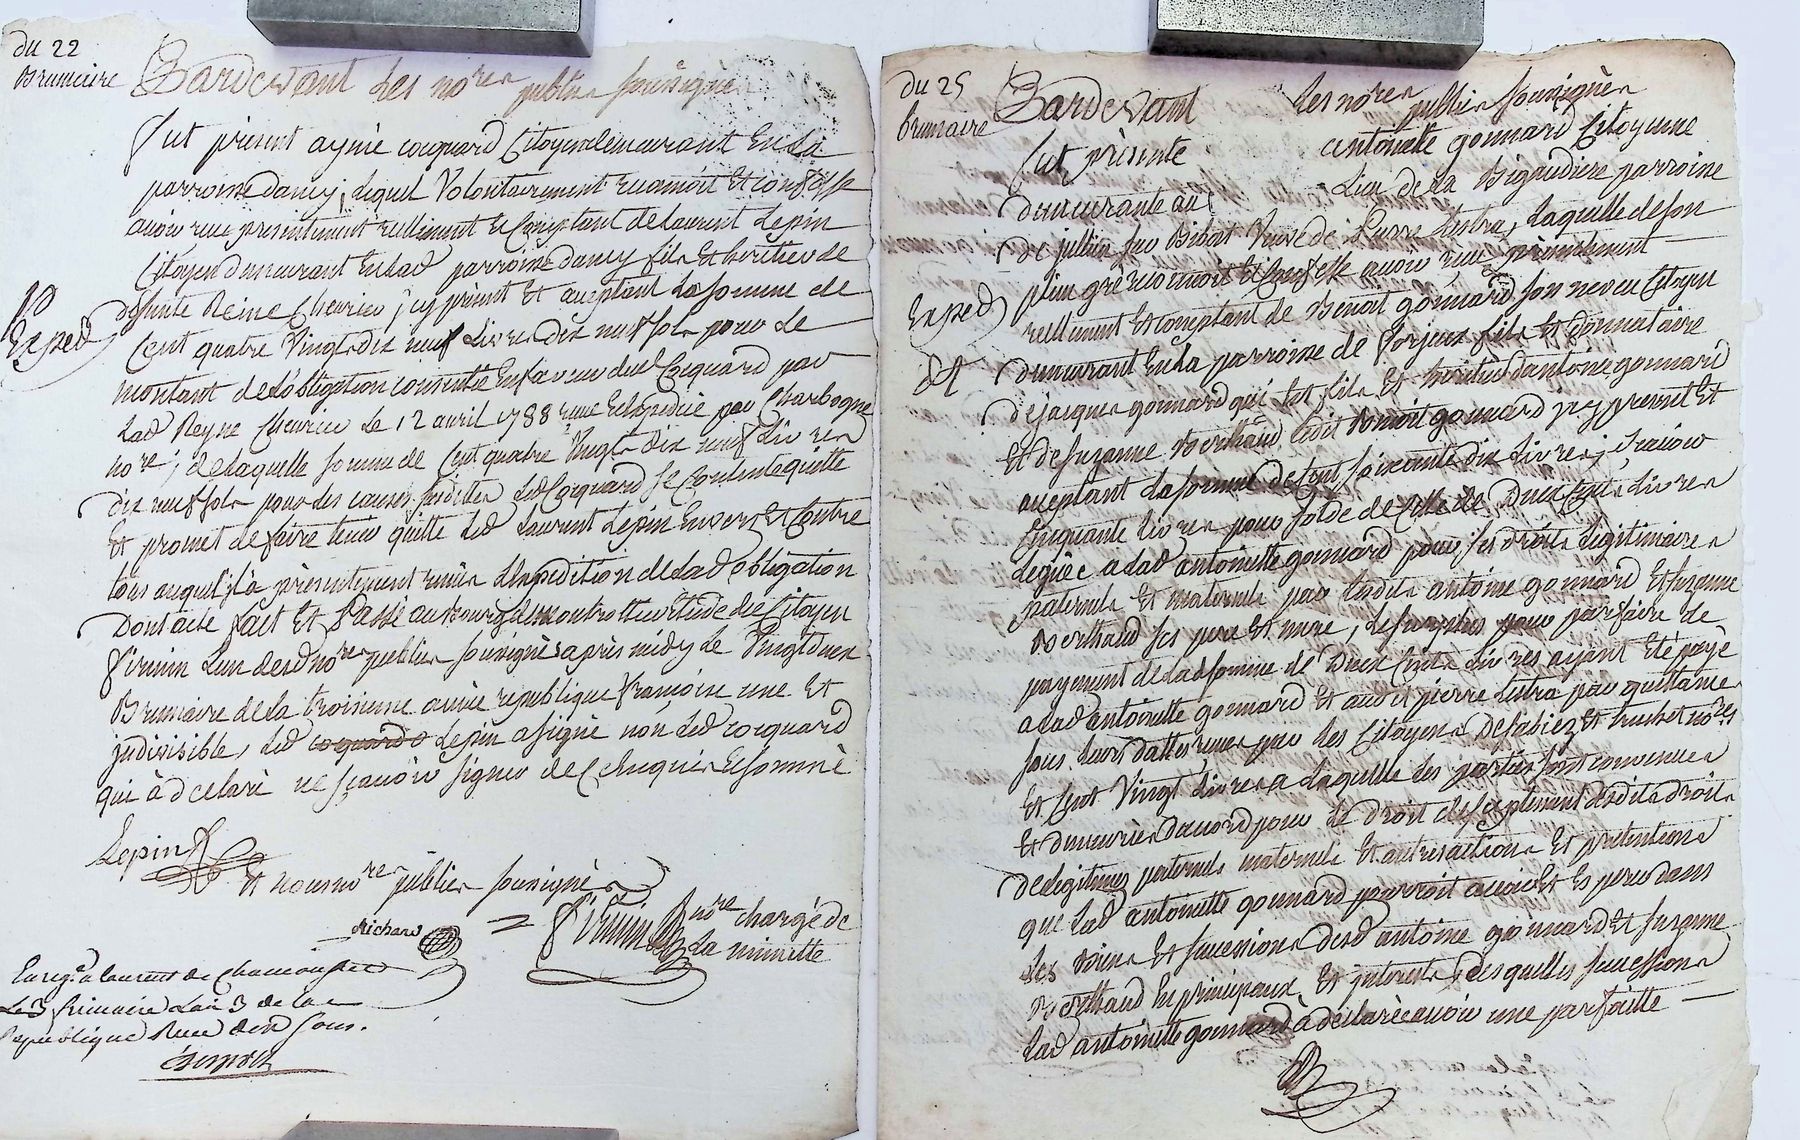 du 22
Brumaire
Pardevant Les no.res publics soussignés
fut présent aymé cocquard Citoyen demeurant En La
parroisse dancy, lequel Volontairement reconnoit Et confesse
avoir reçu présentement réellement Et Comptant de Laurent Lepin
Citoyen demeurant En Lad parroisse dancy fils Et heritier de
defunte Reine Chevrier, icy présent Et aceptant La somme de
Cent quatre Vingt dix neuf Livres dix neuf sols pour Le
montant de L'obligation consentie En faveur dud Cocquard par
Lad Reyne Chevrier Le 12 avril 1788 reçue Et Expediée par Charbogne
no.re ; de laquelle somme de Cent quatre Vingt dix neuf Livres
dix neuf sols pour les causes susdites Led Cocquard se Contente quitte
Et promet de faire tenir quitte Led Laurent Lepin Envers Et Contre
tous auquel il a présentement remis L'Expedition de Lad obligation
Dont acte fait Et Passé au Bourg de montrottier Etude du Citoyen
firmin L'un desd no.res publics soussignés après midy Le Vingt deux
Brumaire de La troisieme année republique françoise une Et
indivisible, Led cocquard Lepin a signé non Led cocquard
qui à déclaré ne sçavoir signer de Ce Enquis Et sommé
Expéd
Lepin
Et nous no.res publics soussignés
Richard = firmin no.re chargé de
La minutte
Enreg.é a laurent de Chamousset
Le 3 frimaire L'an 3 de la
Republique Reçu
sous.
du 25
brumaire
Pardevant Les no.res publics soussignés
fut présente antoinette gonnard Citoyenne
demeurante au Lieu de La Bigaudiere parroisse
de jullien sur Bibost Veuve de Pierre Lutra, Laquelle de son
plein gré reconnoit Et Confesse avoir reçu présentement
réellement Et comptant de Benoit gonnard son neveu Citoyen
demeurant En La parroisse de Forjeux fils Et donnataire
de jacques gonnard qui Est fils Et heritier d'antoine gonnard
Et de suzanne Berthaud Ledit Benoit gonnard icy présent Et
aceptant La somme de Cent soixante dix Livres, Sçavoir
Cinquante Livres pour solde de Celle de Deux Cents Livres
Leguée a Lad antoinette gonnard pour ses droits Légitimaires
paternels Et maternels par Lesdits antoine gonnard Et suzanne
Berthaud ses pere Et mere, Le surplus pour parfaire Le
payement de Lad somme de Deux Cents Livres ayant Eté payé
a Lad antoinette gonnard Et aud pierre Lutra par quittances
sous Leurs dattes reçues par Les Citoyens Desabiez Et truchet no.res
Et Cent Vingt Livres a Laquelle Les parties sont convenues
Et demeurées d'accord pour Le Droit de suplement desdits droits
de legitimes paternels maternels Et autres actions Et prétentions
que Lad antoinette gonnard pourroit avoir Et Esperer dans
Les Biens Et successions desd antoine gonnard Et suzanne
Berthaud En principaux Et interets, desquelles successions
Lad antoinette gonnard à déclaré avoir une parfaitte
Expéd